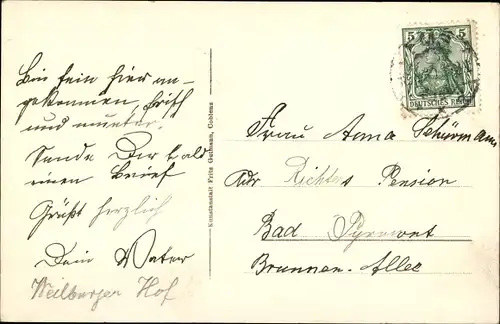 Bin fein hier an-
gekommen, frisch
und munter.
Sende Dir bald
einen Brief
Grüßt herzlich
Dein Vater
Weilburger Hof
Kunstanstalt Fritz Gutmann, Coblenz
5 5
DEUTSCHES REICH
Frau Anna Schürmann
Adr Richters Pension
Bad Pyrmont
Brunnen-Allee